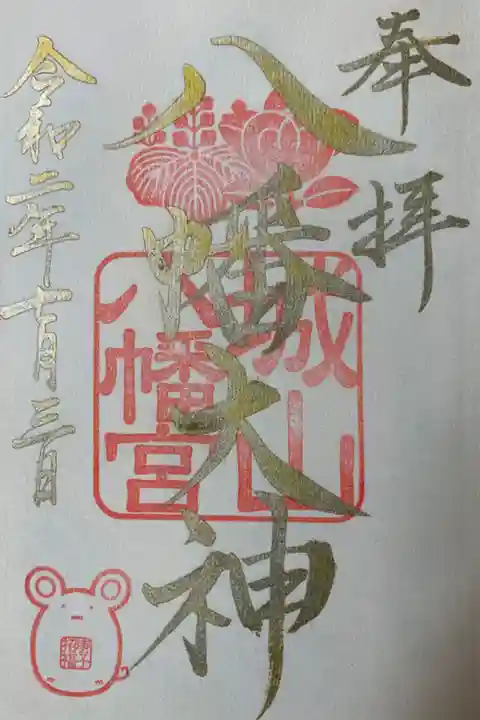 奉拝
八幡大神
城山
八幡宮
令和二年十月三日